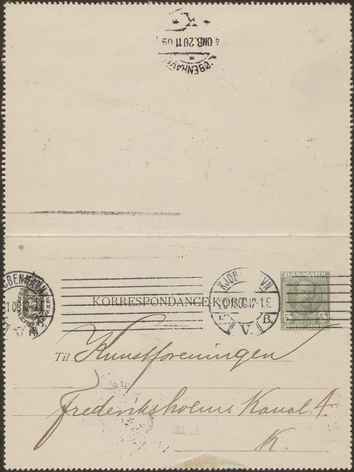 KØBENHAVN
K
DANMARK
KORRESPONDANCE-KORT
Til Kunstforeningen
Frederiksholms Kanal 4
K.